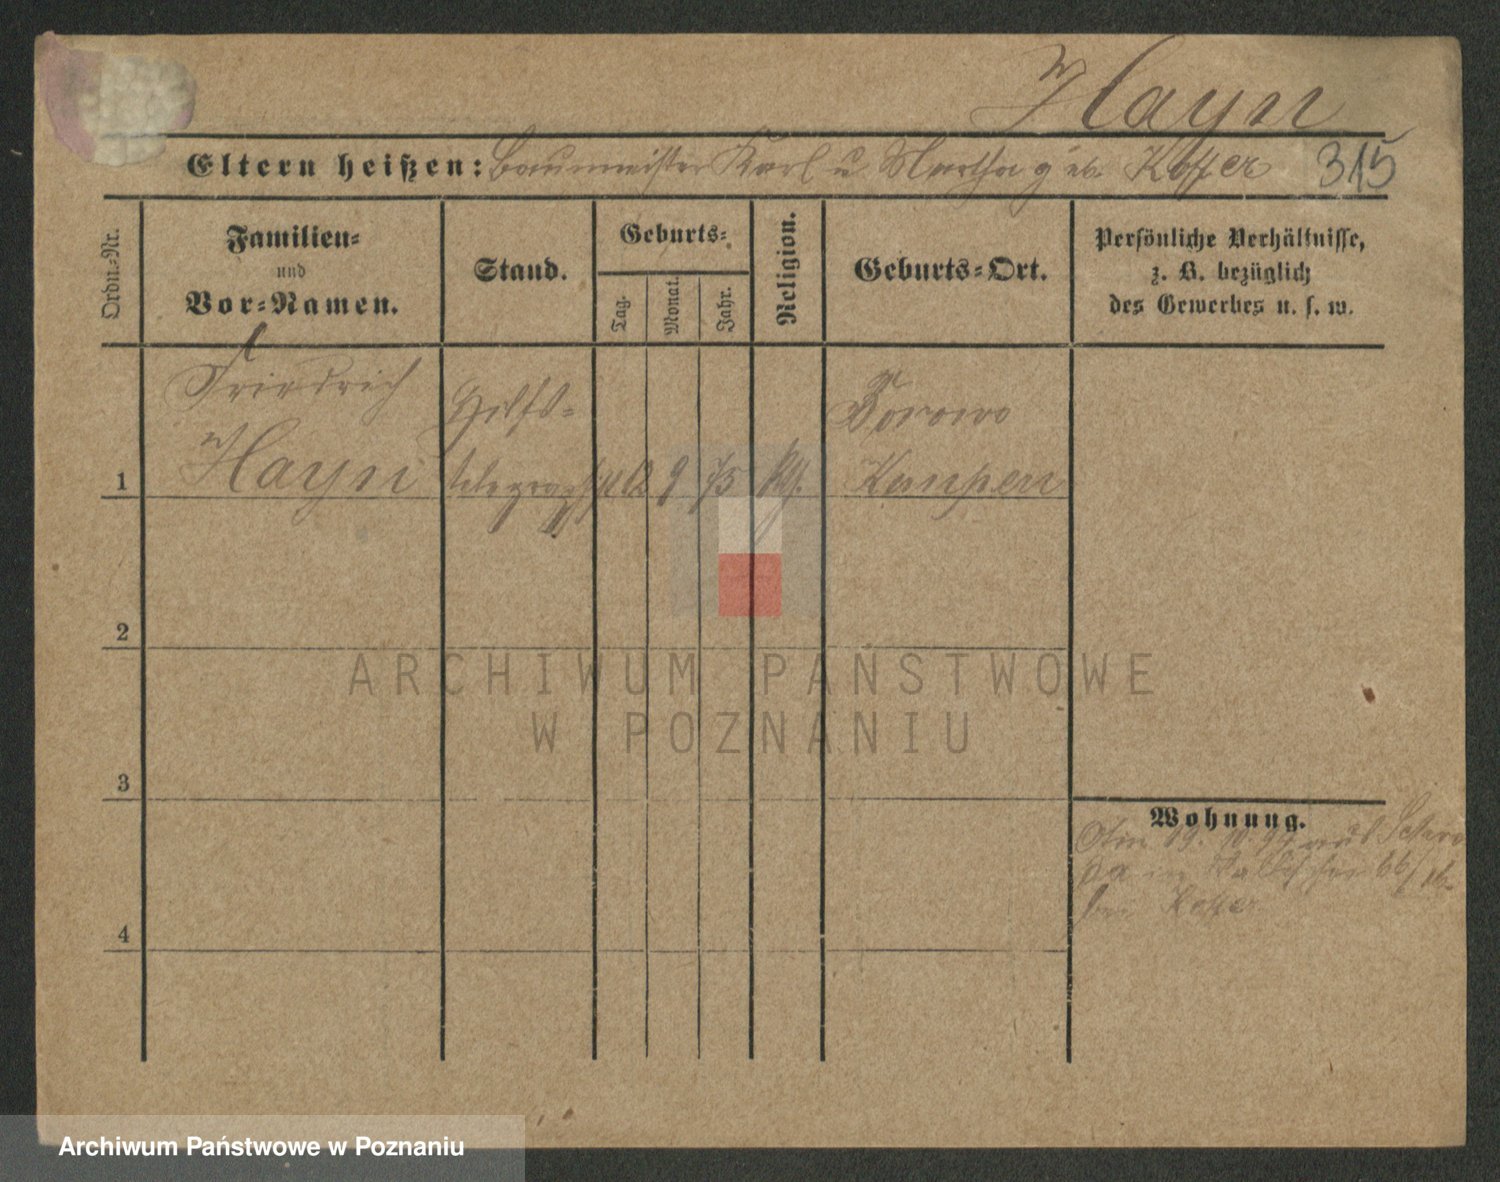 Hayn
Eltern heißen: Baumeister Karl u Martha geb. Koffer
315
Ordn.-Nr.
Familien-
und
Vor-Namen.
Stand.
Geburts-
Tag.
Monat.
Jahr.
Religion.
Geburts-Ort.
Persönliche Verhältnisse,
z. B. bezüglich
des Gewerbes u. s. w.
Friedrich
Hayn
Hilfs-
telegraphist
12 9 75
Borowo
Kempen
1
2
3
4
Wohnung.
Am 19. 10. 94 aus
in Wallischei 66/
bei Koffer
ARCHIWUM PAŃSTWOWE
W POZNANIU
Archiwum Państwowe w Poznaniu